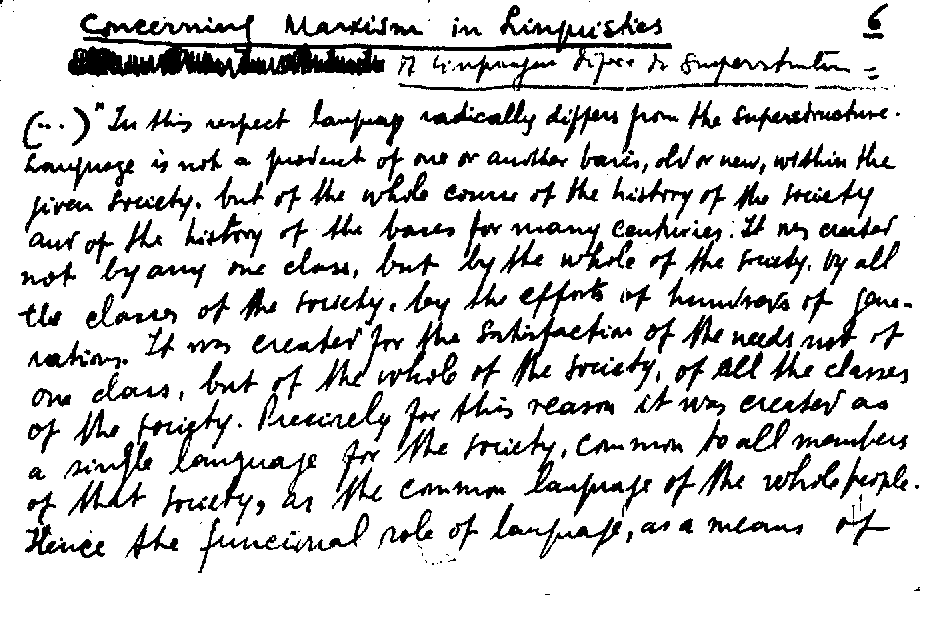 Concerning Marxism in Linguistics 6
Superstructure =
(...) "In this respect language radically differs from the superstructure.
Language is not a product of one or another basis, old or new, within the
given society, but of the whole course of the history of the society
and of the history of the bases for many centuries. It was created
not by any one class, but by the whole of the society, by all
the classes of the society, by the efforts of hundreds of gene-
rations. It was created for the satisfaction of the needs not of
one class, but of the whole of the society, of all the classes
of the society. Precisely for this reason it was created as
a single language for the society, common to all members
of that society, as the common language of the whole people.
Hence the funcional role of language, as a means of